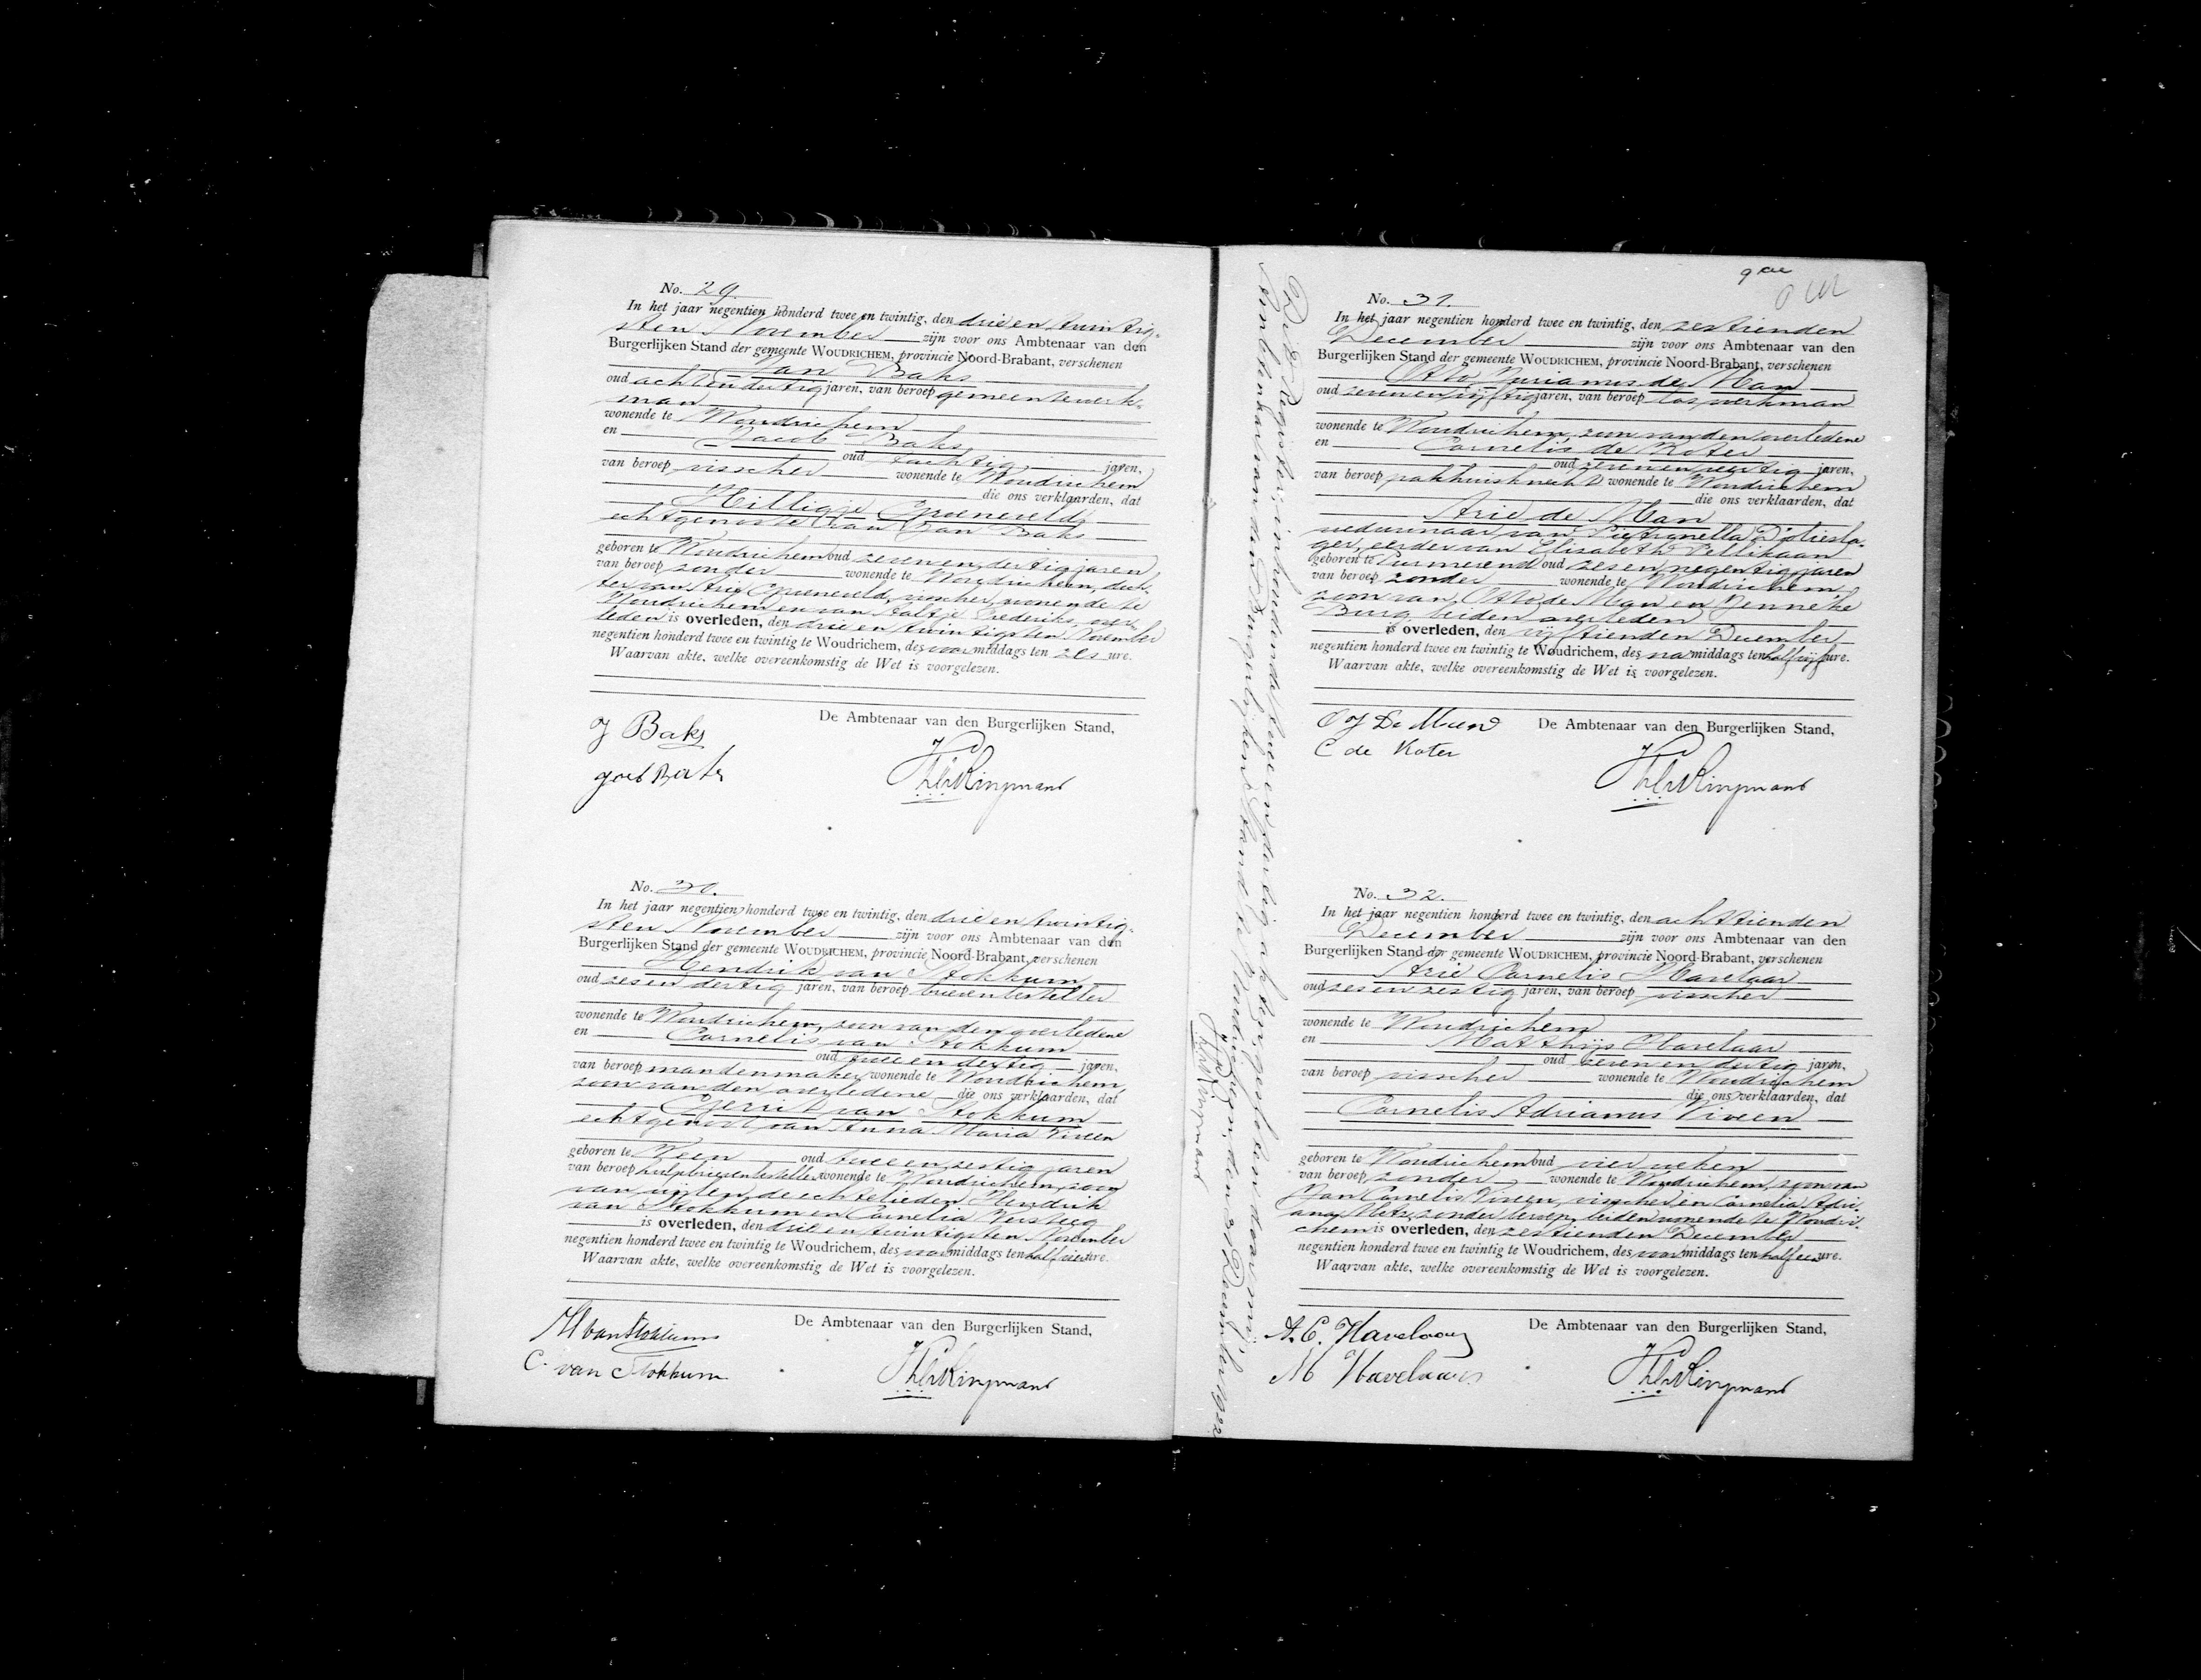 No. 29.
In het jaar negentien honderd twee en twintig, den drie en twintig-
sten November zijn voor ons Ambtenaar van den
Burgerlijken Stand der gemeente WOUDRICHEM, provincie Noord-Brabant, verschenen
Jan Baks
oud achtendertig jaren, van beroep gemeentewerk-
man
wonende te Woudrichem
en Jacob Baks
oud tachtig jaren,
van beroep visscher wonende te Woudrichem
die ons verklaarden, dat
Hilligje Groeneveld
echtgenoote van Jan Baks
geboren te Woudrichem oud zevenendertig jaren
van beroep zonder wonende te Woudrichem, doch-
ter van Arie Groeneveld, visscher, wonende te
Woudrichem en van Aaltje Frederiks, over-
leden is overleden, den drie en twintigsten November
negentien honderd twee en twintig te Woudrichem, des voormiddags ten zes ure.
Waarvan akte, welke overeenkomstig de Wet is voorgelezen.
De Ambtenaar van den Burgerlijken Stand,
J Baks
Jacob Baks
No. 30.
In het jaar negentien honderd twee en twintig, den drie en twintig-
sten November zijn voor ons Ambtenaar van den
Burgerlijken Stand der gemeente WOUDRICHEM, provincie Noord-Brabant, verschenen
Hendrik van Stokkum
oud zesendertig jaren, van beroep brievenbesteller
wonende te Woudrichem, zoon van den overledene
en Cornelis van Stokkum
oud tweeendertig jaren,
van beroep mandenmaker wonende te Woudrichem,
zoon van den overledene die ons verklaarden, dat
Gerrit van Stokkum
echtgenoot van Anna Maria Viveen
geboren te Veen oud tweeenzestig jaren
van beroep hulpbrievenbesteller wonende te Woudrichem, zoon
van wijlen de echtelieden Hendrik
van Stokkum en Cornelia Versteeg
is overleden, den drie en twintigsten November
negentien honderd twee en twintig te Woudrichem, des voormiddags ten half vier ure.
Waarvan akte, welke overeenkomstig de Wet is voorgelezen.
De Ambtenaar van den Burgerlijken Stand,
H van Stokkum
C. van Stokkum
Dit Register, inhoudende tweeendertig akten, gesloten door mij,
Ambtenaar van den Burgerlijken Stand te Woudrichem, den 31 December 1922
No. 31.
In het jaar negentien honderd twee en twintig, den zestienden
December zijn voor ons Ambtenaar van den
Burgerlijken Stand der gemeente WOUDRICHEM, provincie Noord-Brabant, verschenen
Otto Jurianus de Man
oud zevenenvijftig jaren, van beroep los werkman
wonende te Woudrichem, zoon van den overledene
en Cornelis de Koter
oud zevenenveertig jaren,
van beroep pakhuisknecht wonende te Woudrichem
die ons verklaarden, dat
Arie de Man
weduwnaar van Pietronella D'oliesla-
ger, eerder van Elisabeth Pellikaan
geboren te Purmerend oud zesennegentig jaren
van beroep zonder wonende te Woudrichem
zoon van Otto de Man en Jenneke
Burg, beiden overleden
is overleden, den vijftienden December
negentien honderd twee en twintig te Woudrichem, des namiddags ten half vijf ure.
Waarvan akte, welke overeenkomstig de Wet is voorgelezen.
De Ambtenaar van den Burgerlijken Stand,
O J De Man
C de Koter
No. 32.
In het jaar negentien honderd twee en twintig, den achttienden
December zijn voor ons Ambtenaar van den
Burgerlijken Stand der gemeente WOUDRICHEM, provincie Noord-Brabant, verschenen
Arie Cornelis Havelaar
oud zesenzestig jaren, van beroep visscher
wonende te Woudrichem
en Matthijs Havelaar
oud zevenendertig jaren,
van beroep visscher wonende te Woudrichem
die ons verklaarden, dat
Cornelis Adrianus Viveen
geboren te Woudrichem oud vier weken
van beroep zonder wonende te Woudrichem, zoon van
Jan Cornelis Viveen, visscher en Cornelia Adri-
ana Metz, zonder beroep, beiden wonende te Woudri-
chem is overleden, den zestienden December
negentien honderd twee en twintig te Woudrichem, des voormiddags ten half een ure.
Waarvan akte, welke overeenkomstig de Wet is voorgelezen.
De Ambtenaar van den Burgerlijken Stand,
A. C. Havelaar
M Havelaar